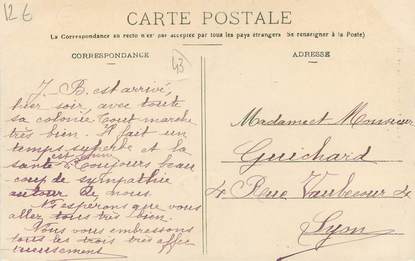 126
CARTE POSTALE
(La Correspondance au recto n'est pas acceptée par tous les pays étrangers. Se renseigner à la Poste)
CORRESPONDANCE
ADRESSE
43
J. B. est arrivé,
hier soir, avec toute
sa colonie tout marche
très bien. Il fait un
temps superbe et la
santé est bonne Toujours beau
coup de sympathie
autour de nous.
Ns espérons que vous
allez tous très bien.
Vous vous embrassons
tous les trois très affec
tueusement
Madame et Monsieur
Guichard
4 Rue Vaubecour 4
Lyon